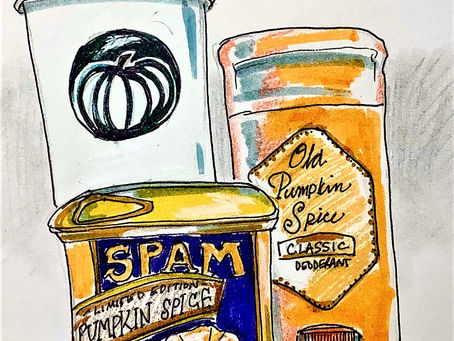 Old
Pumpkin
Spice
CLASSIC
DEODERANT
SPAM
LIMITED EDITION
PUMPKIN SPICE